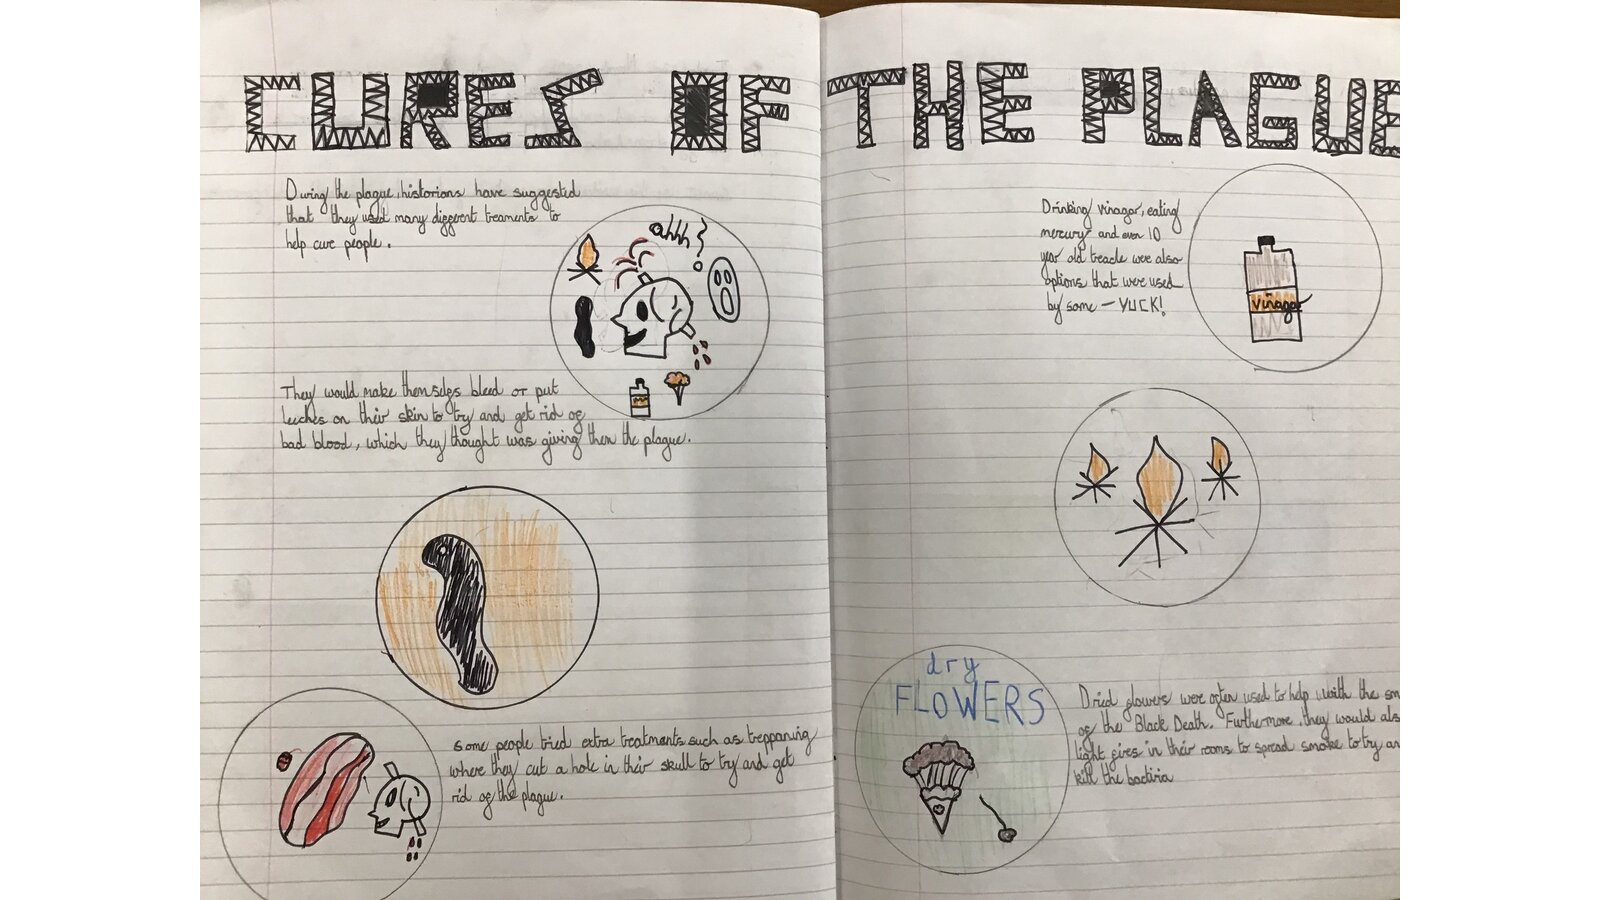 CURES OF THE PLAGUE
During the plague, historians have suggested
that they used many different treaments to
help cure people.
ahhh
They would make themselgs bleed or put
leeches on their skin to try and get rid of
bad blood, which they thought was giving them the plague.
some people tried extra treatments such as treppaning
where they cut a hole in their skull to try and get
rid of the plague.
Drinking vinagar, eating
mercury and even 10
year old treacle were also
options that were used
by some - YUCK!
vinagar
dry
FLOWERS
Dried flowers were often used to help with the sm
of the Black Death. Furthermore, they would als
light fires in their rooms to spread smoke to try an
kill the bactiria